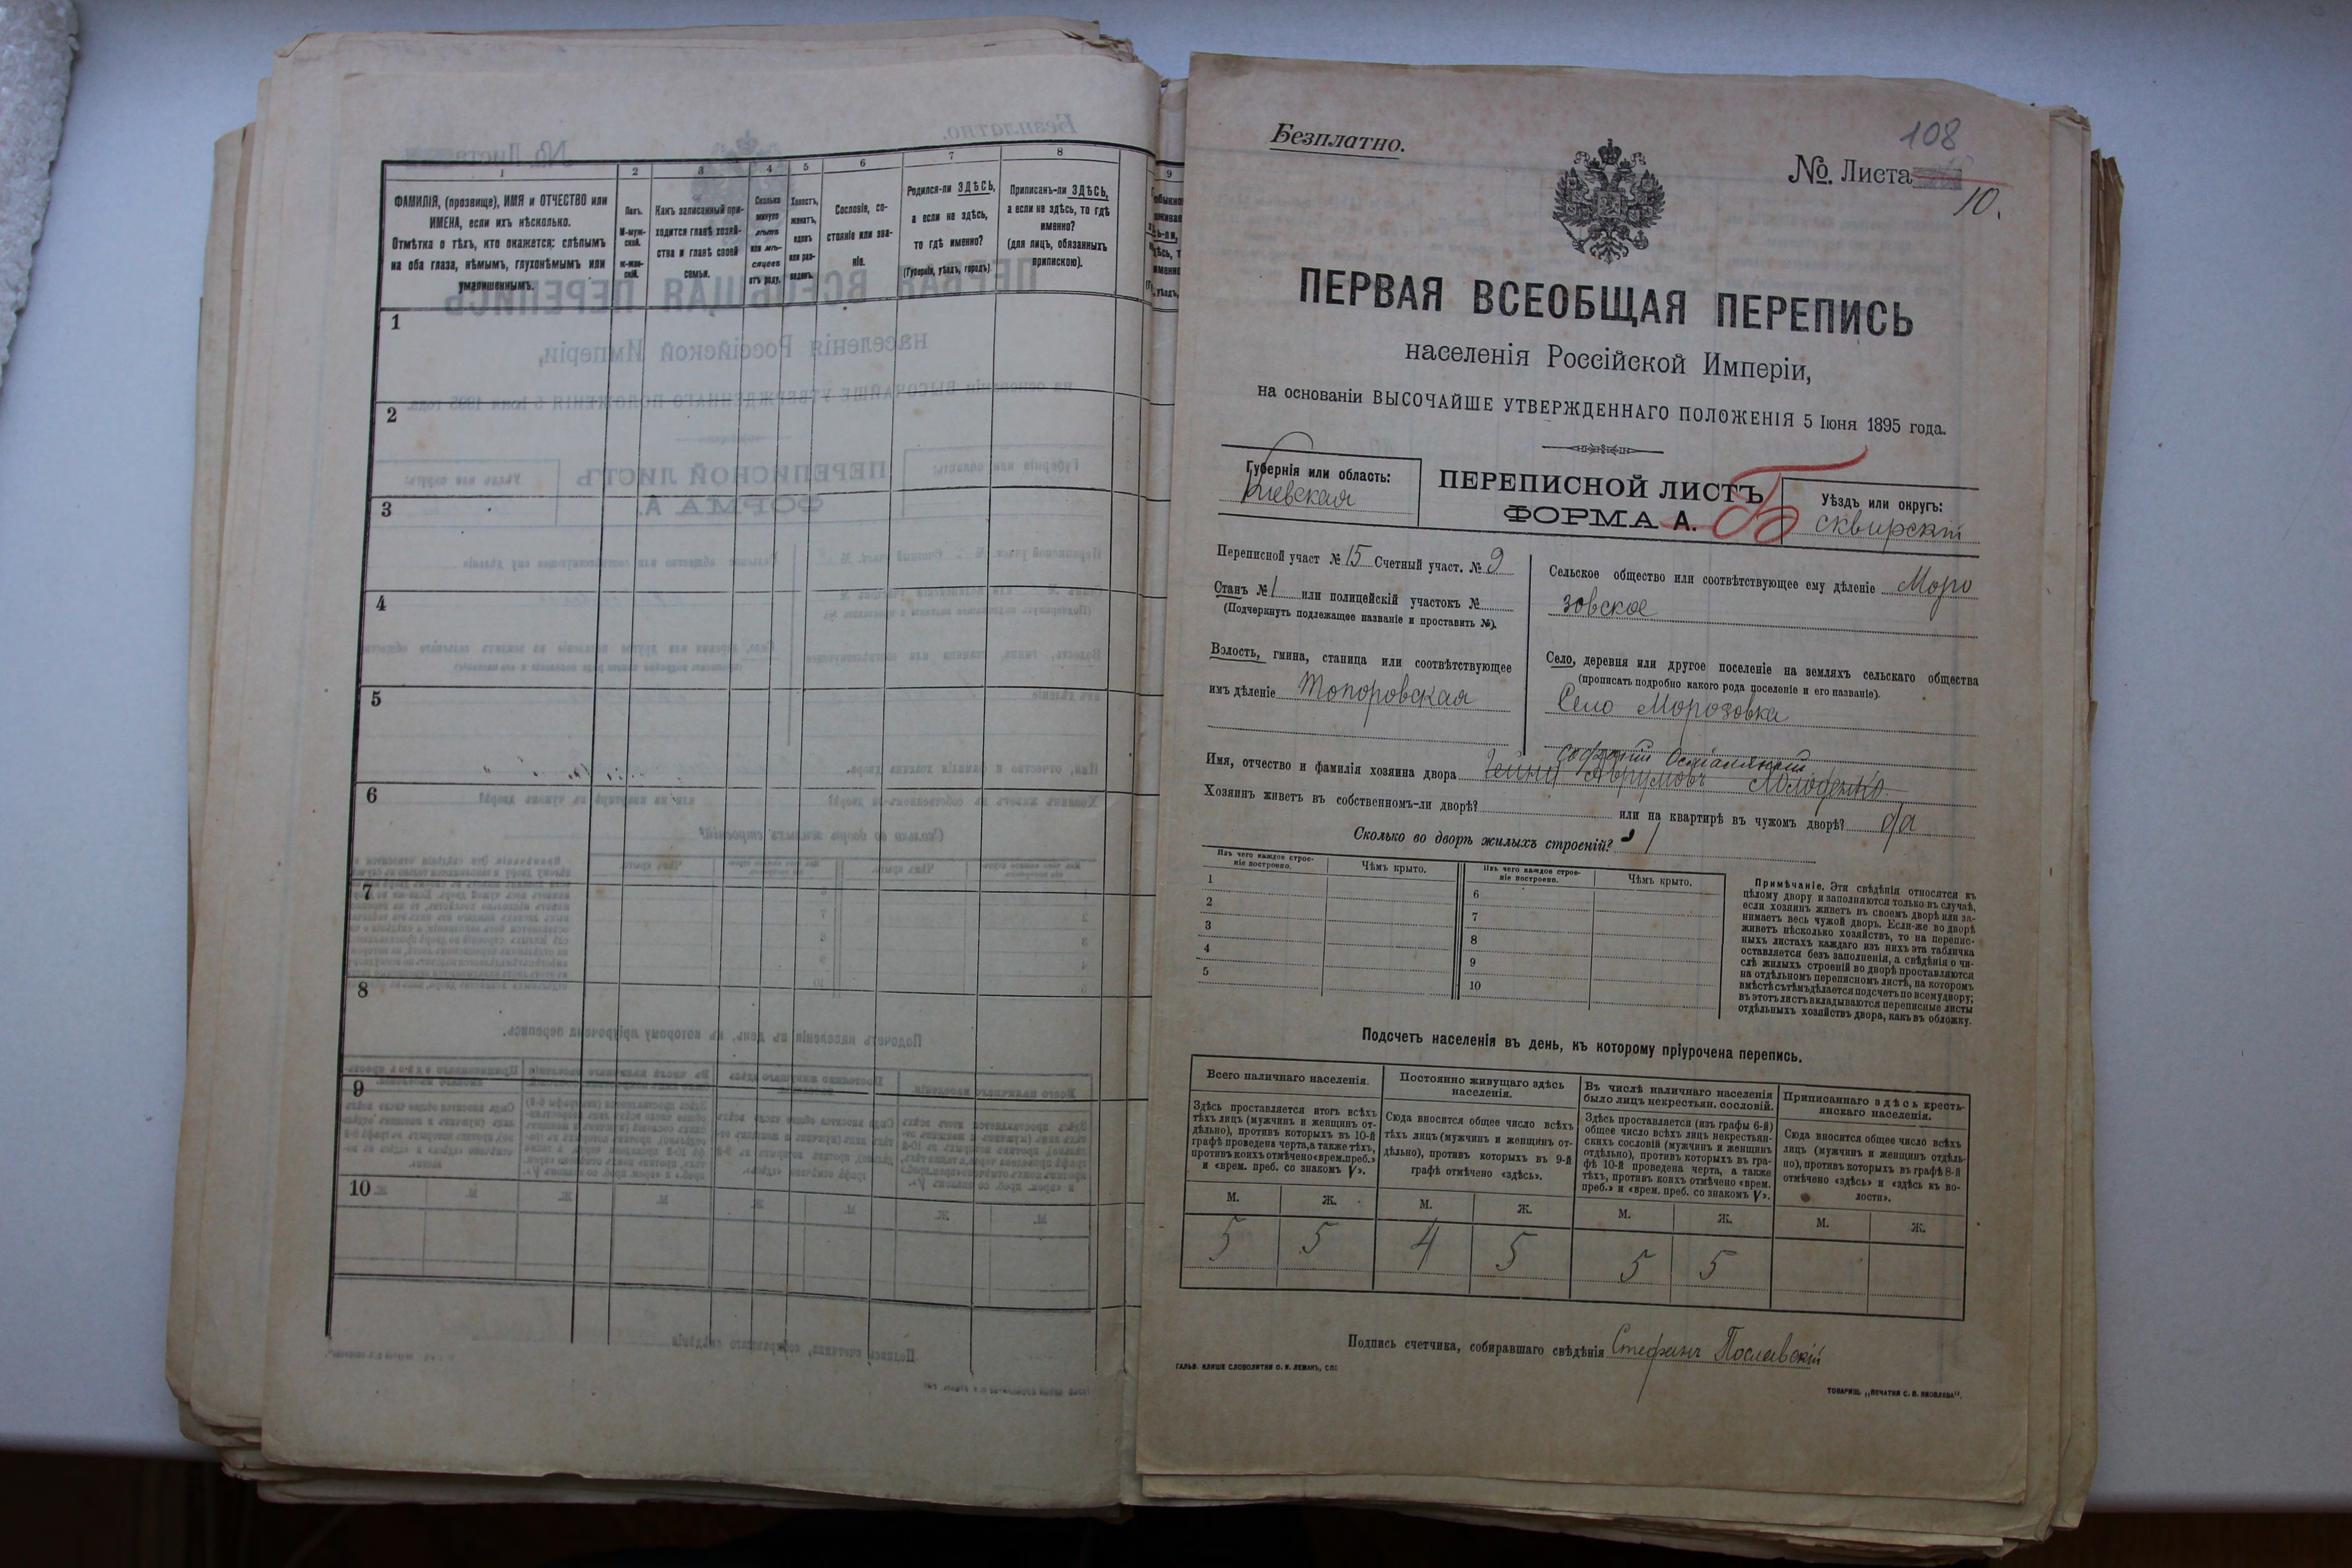 1
2
3
4
5
6
7
8
ФАМИЛІЯ, (прозвище), ИМЯ и ОТЧЕСТВО или
ИМЕНА, если ихъ нѣсколько.
Отмѣтка о тѣхъ, кто окажется: слѣпымъ
на оба глаза, нѣмымъ, глухонѣмымъ или
умалишеннымъ.
Полъ.
М-муж-
ской.
ж-жен-
скій.
Какъ записанный при-
ходится главѣ хозяй-
ства и главѣ своей
семьи.
Сколько
минуло
лѣтъ
или мѣ-
сяцевъ
отъ роду.
Холостъ,
женатъ,
вдовъ
или раз-
веденъ.
Сословіе, со-
стояніе или зва-
ніе.
Родился-ли ЗДѢСЬ,
а если не здѣсь,
то гдѣ именно?
(Губернія, уѣздъ, городъ)
Приписанъ-ли ЗДѢСЬ,
а если не здѣсь, то гдѣ
именно?
(для лицъ, обязанныхъ
припискою).
9
1
2
3
4
5
6
7
8
9
10
Безплатно.
108
№. Листа
10.
ПЕРВАЯ ВСЕОБЩАЯ ПЕРЕПИСЬ
населенія Россійской Имперіи,
на основаніи ВЫСОЧАЙШЕ УТВЕРЖДЕННАГО ПОЛОЖЕНІЯ 5 Іюня 1895 года.
Губернія или область:
Кіевская
ПЕРЕПИСНОЙ ЛИСТЪ
ФОРМА А. Б
Уѣздъ или округъ:
Сквирскій
Переписной участ № 15 Счетный участ. № 9
Станъ № 1 или полицейскій участокъ №
(Подчеркнуть подлежащее названіе и проставить №).
Волость, гмина, станица или соотвѣтствующее
имъ дѣленіе Топоровская
Сельское общество или соотвѣтствующее ему дѣленіе Моро
зовское
Село, деревня или другое поселеніе на земляхъ сельскаго общества
(прописать подробно какого рода поселеніе и его названіе).
Село Морозовка
Имя, отчество и фамилія хозяина двора
Хозяинъ живетъ въ собственномъ-ли дворѣ? или на квартирѣ въ чужомъ дворѣ? да
Сколько во дворѣ жилыхъ строеній? 1
Изъ чего каждое строе-
ніе построено.
Чѣмъ крыто.
Изъ чего каждое строе-
ніе построено.
Чѣмъ крыто.
1
2
3
4
5
6
7
8
9
10
Примѣчаніе. Эти свѣдѣнія относятся къ
цѣлому двору и заполняются только въ случаѣ,
если хозяинъ живетъ въ своемъ дворѣ или за-
нимаетъ весь чужой дворъ. Если-же во дворѣ
живетъ нѣсколько хозяйствъ, то на перепис-
ныхъ листахъ каждаго изъ нихъ эта табличка
оставляется безъ заполненія, а свѣдѣнія о чи-
слѣ жилыхъ строеній во дворѣ проставляются
на отдѣльномъ переписномъ листѣ, на которомъ
вмѣстѣ съ тѣмъ дѣлается подсчетъ по всему двору;
въ этотъ листъ вкладываются переписные листы
отдѣльныхъ хозяйствъ двора, какъ въ обложку.
Подсчетъ населенія въ день, къ которому пріурочена перепись.
Всего наличнаго населенія.
Здѣсь проставляется итогъ всѣхъ
тѣхъ лицъ (мужчинъ и женщинъ от-
дѣльно), противъ которыхъ въ 10-й
графѣ проведена черта, а также тѣхъ,
противъ коихъ отмѣчено «врем. преб.»
и «врем. преб. со знакомъ V».
Постоянно живущаго здѣсь
населенія.
Сюда вносится общее число всѣхъ
тѣхъ лицъ (мужчинъ и женщинъ от-
дѣльно), противъ которыхъ въ 9-й
графѣ отмѣчено «здѣсь».
Въ числѣ наличнаго населенія
было лицъ некрестьян. сословій.
Здѣсь проставляется (изъ графы 6-й)
общее число всѣхъ лицъ некрестьян-
скихъ сословій (мужчинъ и женщинъ
отдѣльно), противъ которыхъ въ гра-
фѣ 10-й проведена черта, а также
тѣхъ, противъ коихъ отмѣчено «врем.
преб.» и «врем. преб. со знакомъ V».
Приписаннаго здѣсь кресть-
янскаго населенія.
Сюда вносится общее число всѣхъ
лицъ (мужчинъ и женщинъ отдѣль-
но), противъ которыхъ въ графѣ 8-й
отмѣчено «здѣсь» и «здѣсь къ во-
лости».
М. Ж. М. Ж. М. Ж. М. Ж.
5 5 4 5 5 5
Подпись счетчика, собиравшаго свѣдѣнія Стефанъ Пославскій
ГАЛЬВ. КЛИШЕ СЛОВОЛИТНИ О. И. ЛЕМАНЪ, СПБ
ТОВАРИЩ. „ПЕЧАТНЯ С. П. ЯКОВЛЕВА“.